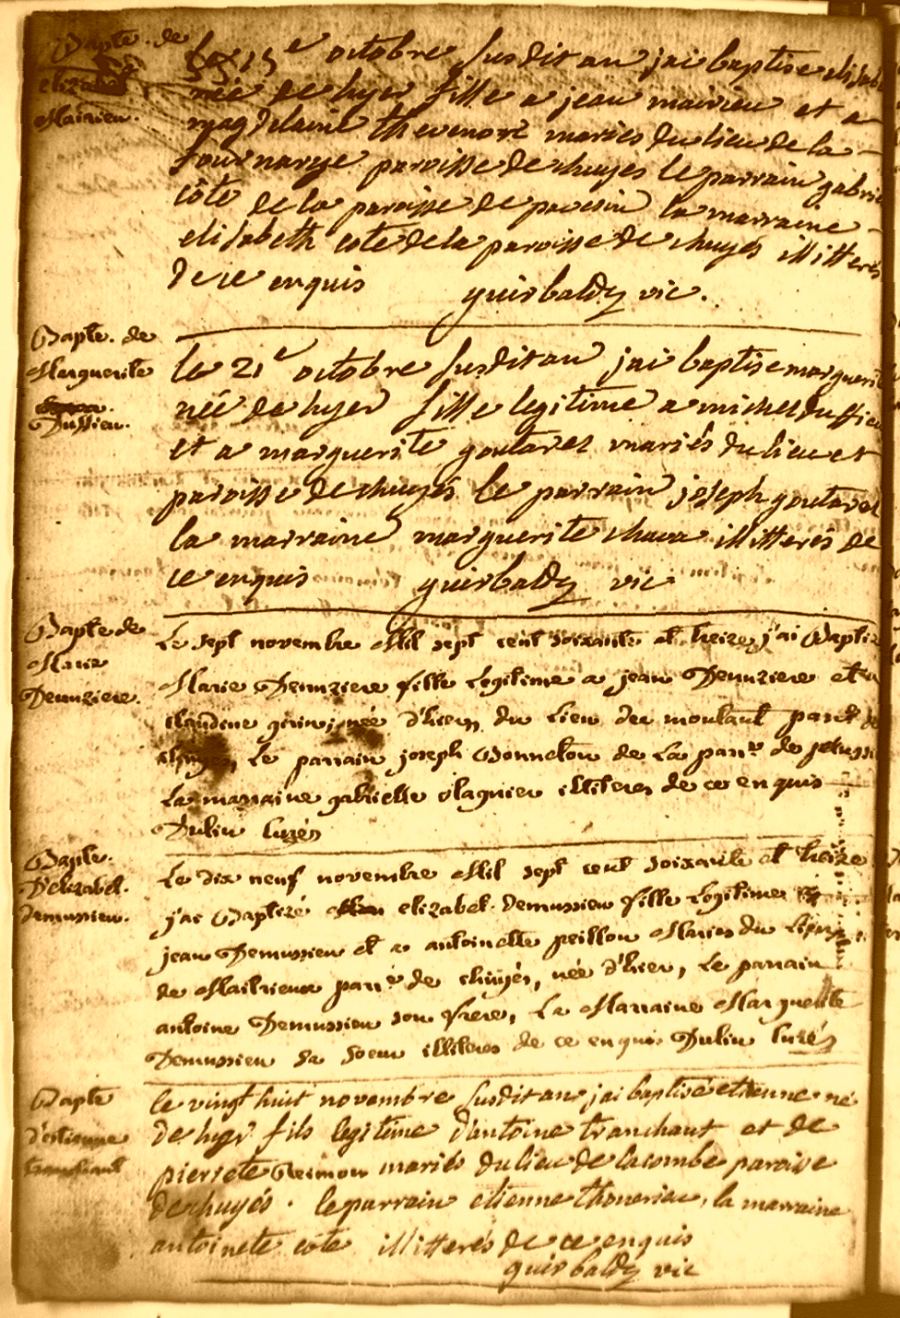 Bapte. de
elizabet
Mairieu.
Le 15e octobre susdit an jai baptise elizab
née de hyer fille a jean mairieu et a
magdelaine thevenore mariés du lieu de la
paroisse de chuyes le parrain gabrie
côte de la paroisse de pavesin la marraine
elisabeth cote de la paroisse de chuyes illitteres
de ce enquis guisbaldy vic.
Bapte. de
Marguerite
Dussieu.
le 21e octobre susdit an jai baptise marguerit
née de hyer fille legitime a michel dussieu
et a marguerite goutarel mariés du lieu et
paroisse de chuyes le parrain joseph goutarel
la marraine marguerite illitteres de
ce enquis guisbaldy vic
Bapte de
Marie
Demziere.
Le sept novembre Mil sept cent soixante et treize, j'ai Baptis
Marie fille Legitime a jean et a
claudine girin, née d'hier, du Lieu du
Le parrain joseph Bonneton de La parr.e de pelussi
La marraine gabrielle olagnier illiteres de ce enquis
Dulin
Bapte.
D'elizabet.
demussieu.
Le dix neuf novembre Mil sept cent soixante et treize
j'ai Baptizé elizabet. demussieu fille Legitime
jean Demussieu et a antoinette peillon Maries du Lieu
de Mailrieux parr.e de chuyés, née d'hier, Le parrain
antoine Demussieu son frere, La Marraine Marguerite
Demussieu sa Soeur illiteres de ce enquis Dulin
Bapte
d'estienne
tranchant
le vingt huit novembre susdit an jai baptisé etienne né
de hyer fils legitime d'antoine tranchant et de
pierrete mariés du lieu de lacombe paroisse
de chuyés. le parrain etienne la marraine
antoinete cote illitterés de ce enquis
guisbaldy vic